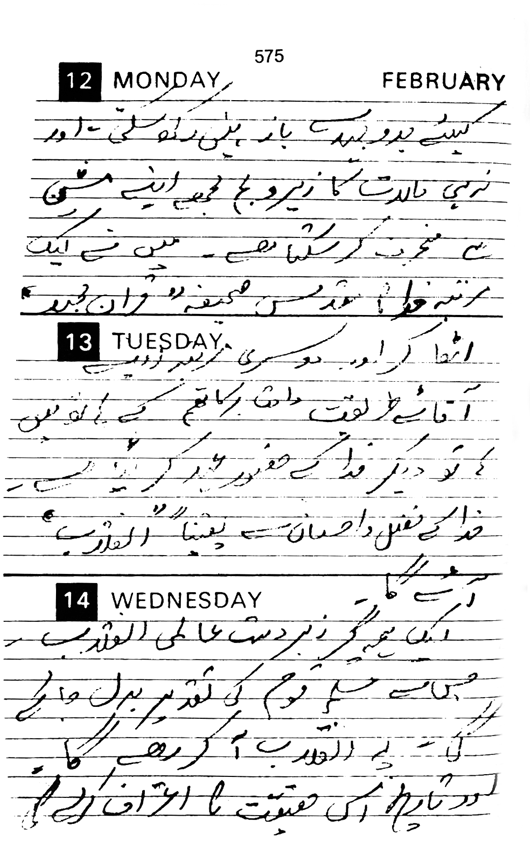 575
12 MONDAY FEBRUARY
کیلئے جدوجہد سے باز نہیں رکھ سکتی - اور
نہ ہی مالات کا زیر و بم مجھے اپنے مشن
سے منحرف کر سکتا ہے - میں نے ایک
مرتبہ خدا کا مقدس صحیفہ "قرآن مجید"
13 TUESDAY
اٹھا کر اور دوسری مرتبہ اپنے
آقائے طریقت دامت برکاتھم کے ہاتھ میں
ہاتھ دیکر خدا کے حضور عہد کر لیا ہے -
خدا کے فضل و احسان سے یقیناً "انقلاب"
آئے گا -
14 WEDNESDAY
ایک ہمہ گیر زبردست عالمی انقلاب -
جس سے مسلم قوم کی تقدیر بدل جائے
گی - یہ انقلاب آ کر رہے گا -
اور تاریخ اس حقیقت کا اعتراف کرے گی